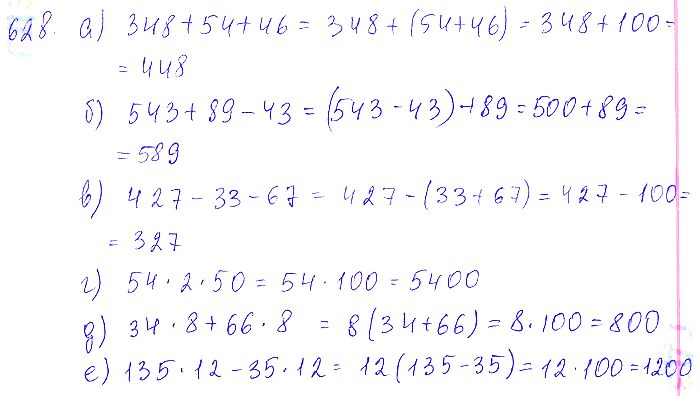 628. а) 348 + 54 + 46 = 348 + (54 + 46) = 348 + 100 =
= 448
б) 543 + 89 - 43 = (543 - 43) + 89 = 500 + 89 =
= 589
в) 427 - 33 - 67 = 427 - (33 + 67) = 427 - 100 =
= 327
г) 54 · 2 · 50 = 54 · 100 = 5400
д) 34 · 8 + 66 · 8 = 8 (34 + 66) = 8 · 100 = 800
е) 135 · 12 - 35 · 12 = 12 (135 - 35) = 12 · 100 = 1200